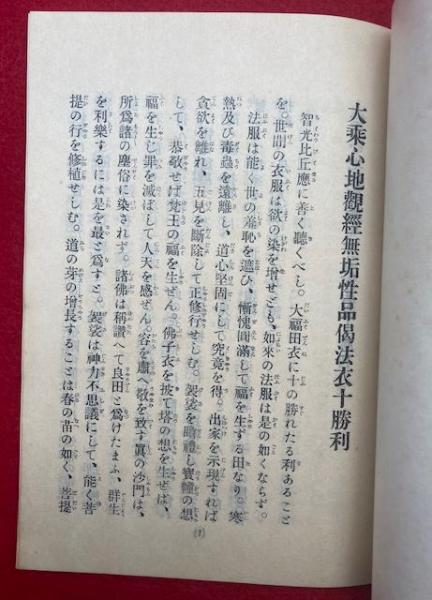 大乘心地觀經無垢性品偈法衣十勝利
智光比丘應に善く聽くべし。大福田衣に十の勝れたる利あること
を。世間の衣服は欲の染を增せども、如來の法服は是の如くならず。
法服は能く世の羞恥を遮ひ、慚愧圓滿して福を生する田なり。寒
熱及び毒蟲を遠離し、道心堅固にして究竟を得。出家を示現すれば
貪欲を離れ、五見を斷除して正修行せしむ。袈裟を瞻禮し寶幢の想
して、恭敬せば梵王の福を生ぜん。佛子衣を披て塔の想を生ぜば、
福を生じ罪を滅ぼして人天を感ぜん。容を肅へ敬を致す眞の沙門は、
所爲諸の塵俗に染されず。諸佛は稱讚へて良田と爲けたまふ、群生
を利樂するには是を最と爲すと。袈裟は神力不思議にして、能く菩
提の行を修植せしむ。道の芽の增長することは春の苗の如く、菩提